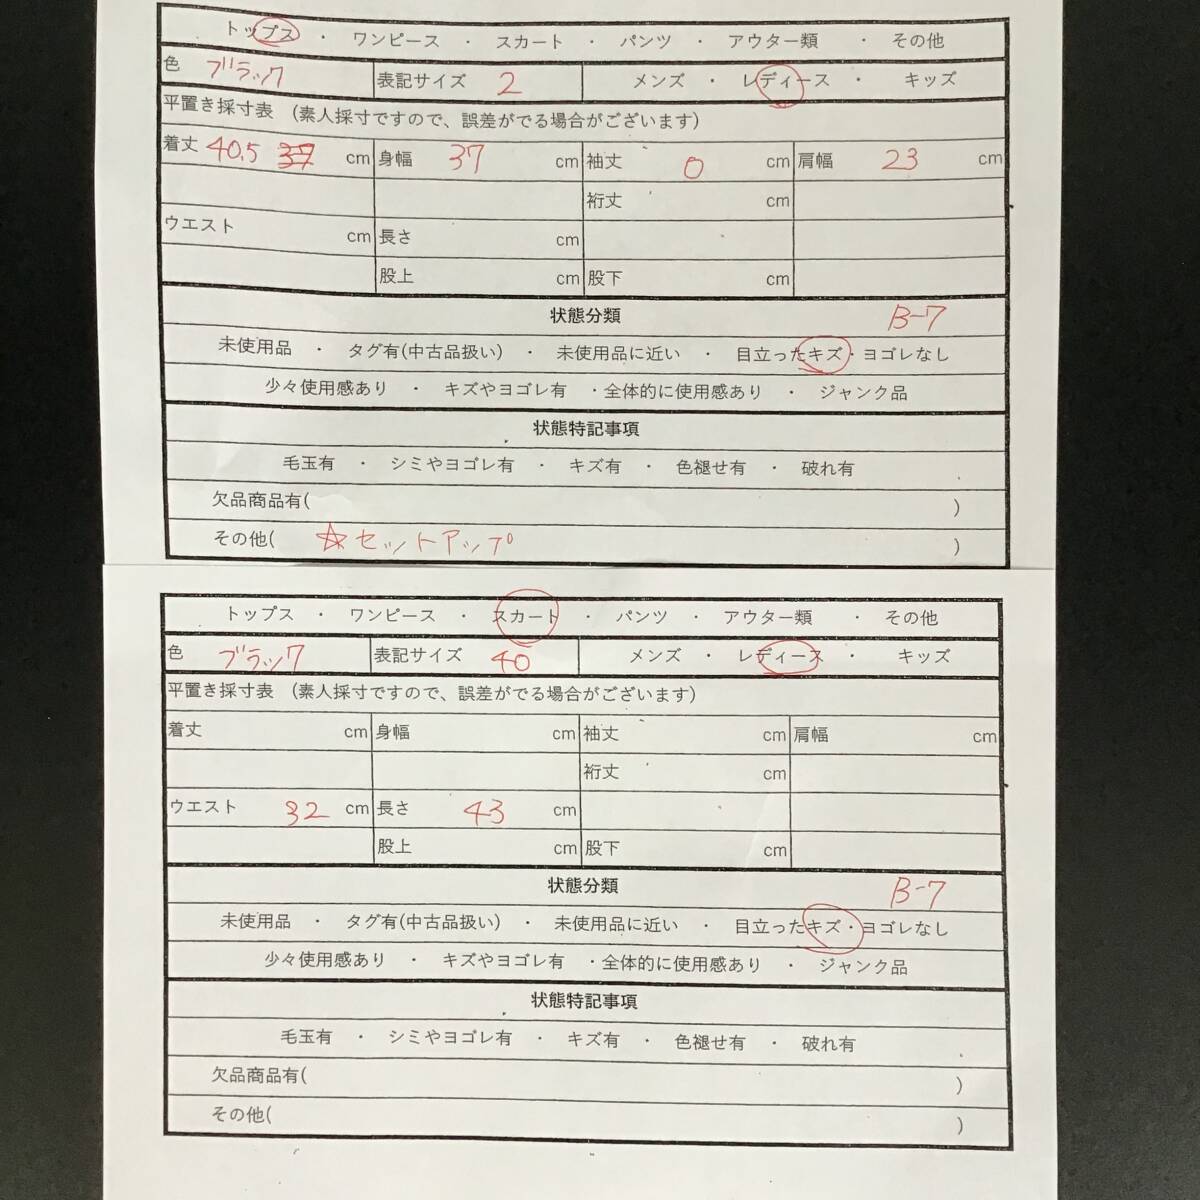 トップス ・ ワンピース ・ スカート ・ パンツ ・ アウター類 ・ その他
色 ブラック 表記サイズ 2 メンズ ・ レディース ・ キッズ
平置き採寸表 (素人採寸ですので、誤差がでる場合がございます)
着丈 40.5 37 cm 身幅 37 cm 袖丈 0 cm 肩幅 23 cm
裄丈 cm
ウエスト cm 長さ cm
股上 cm 股下 cm
状態分類 B-7
未使用品 ・ タグ有(中古品扱い) ・ 未使用品に近い ・ 目立ったキズ・ヨゴレなし
少々使用感あり ・ キズやヨゴレ有 ・全体的に使用感あり ・ ジャンク品
状態特記事項
毛玉有 ・ シミやヨゴレ有 ・ キズ有 ・ 色褪せ有 ・ 破れ有
欠品商品有( )
その他( ☆セットアップ )
トップス ・ ワンピース ・ スカート ・ パンツ ・ アウター類 ・ その他
色 ブラック 表記サイズ 40 メンズ ・ レディース ・ キッズ
平置き採寸表 (素人採寸ですので、誤差がでる場合がございます)
着丈 cm 身幅 cm 袖丈 cm 肩幅 cm
裄丈 cm
ウエスト 32 cm 長さ 43 cm
股上 cm 股下 cm
状態分類 B-7
未使用品 ・ タグ有(中古品扱い) ・ 未使用品に近い ・ 目立ったキズ・ヨゴレなし
少々使用感あり ・ キズやヨゴレ有 ・全体的に使用感あり ・ ジャンク品
状態特記事項
毛玉有 ・ シミやヨゴレ有 ・ キズ有 ・ 色褪せ有 ・ 破れ有
欠品商品有( )
その他( )